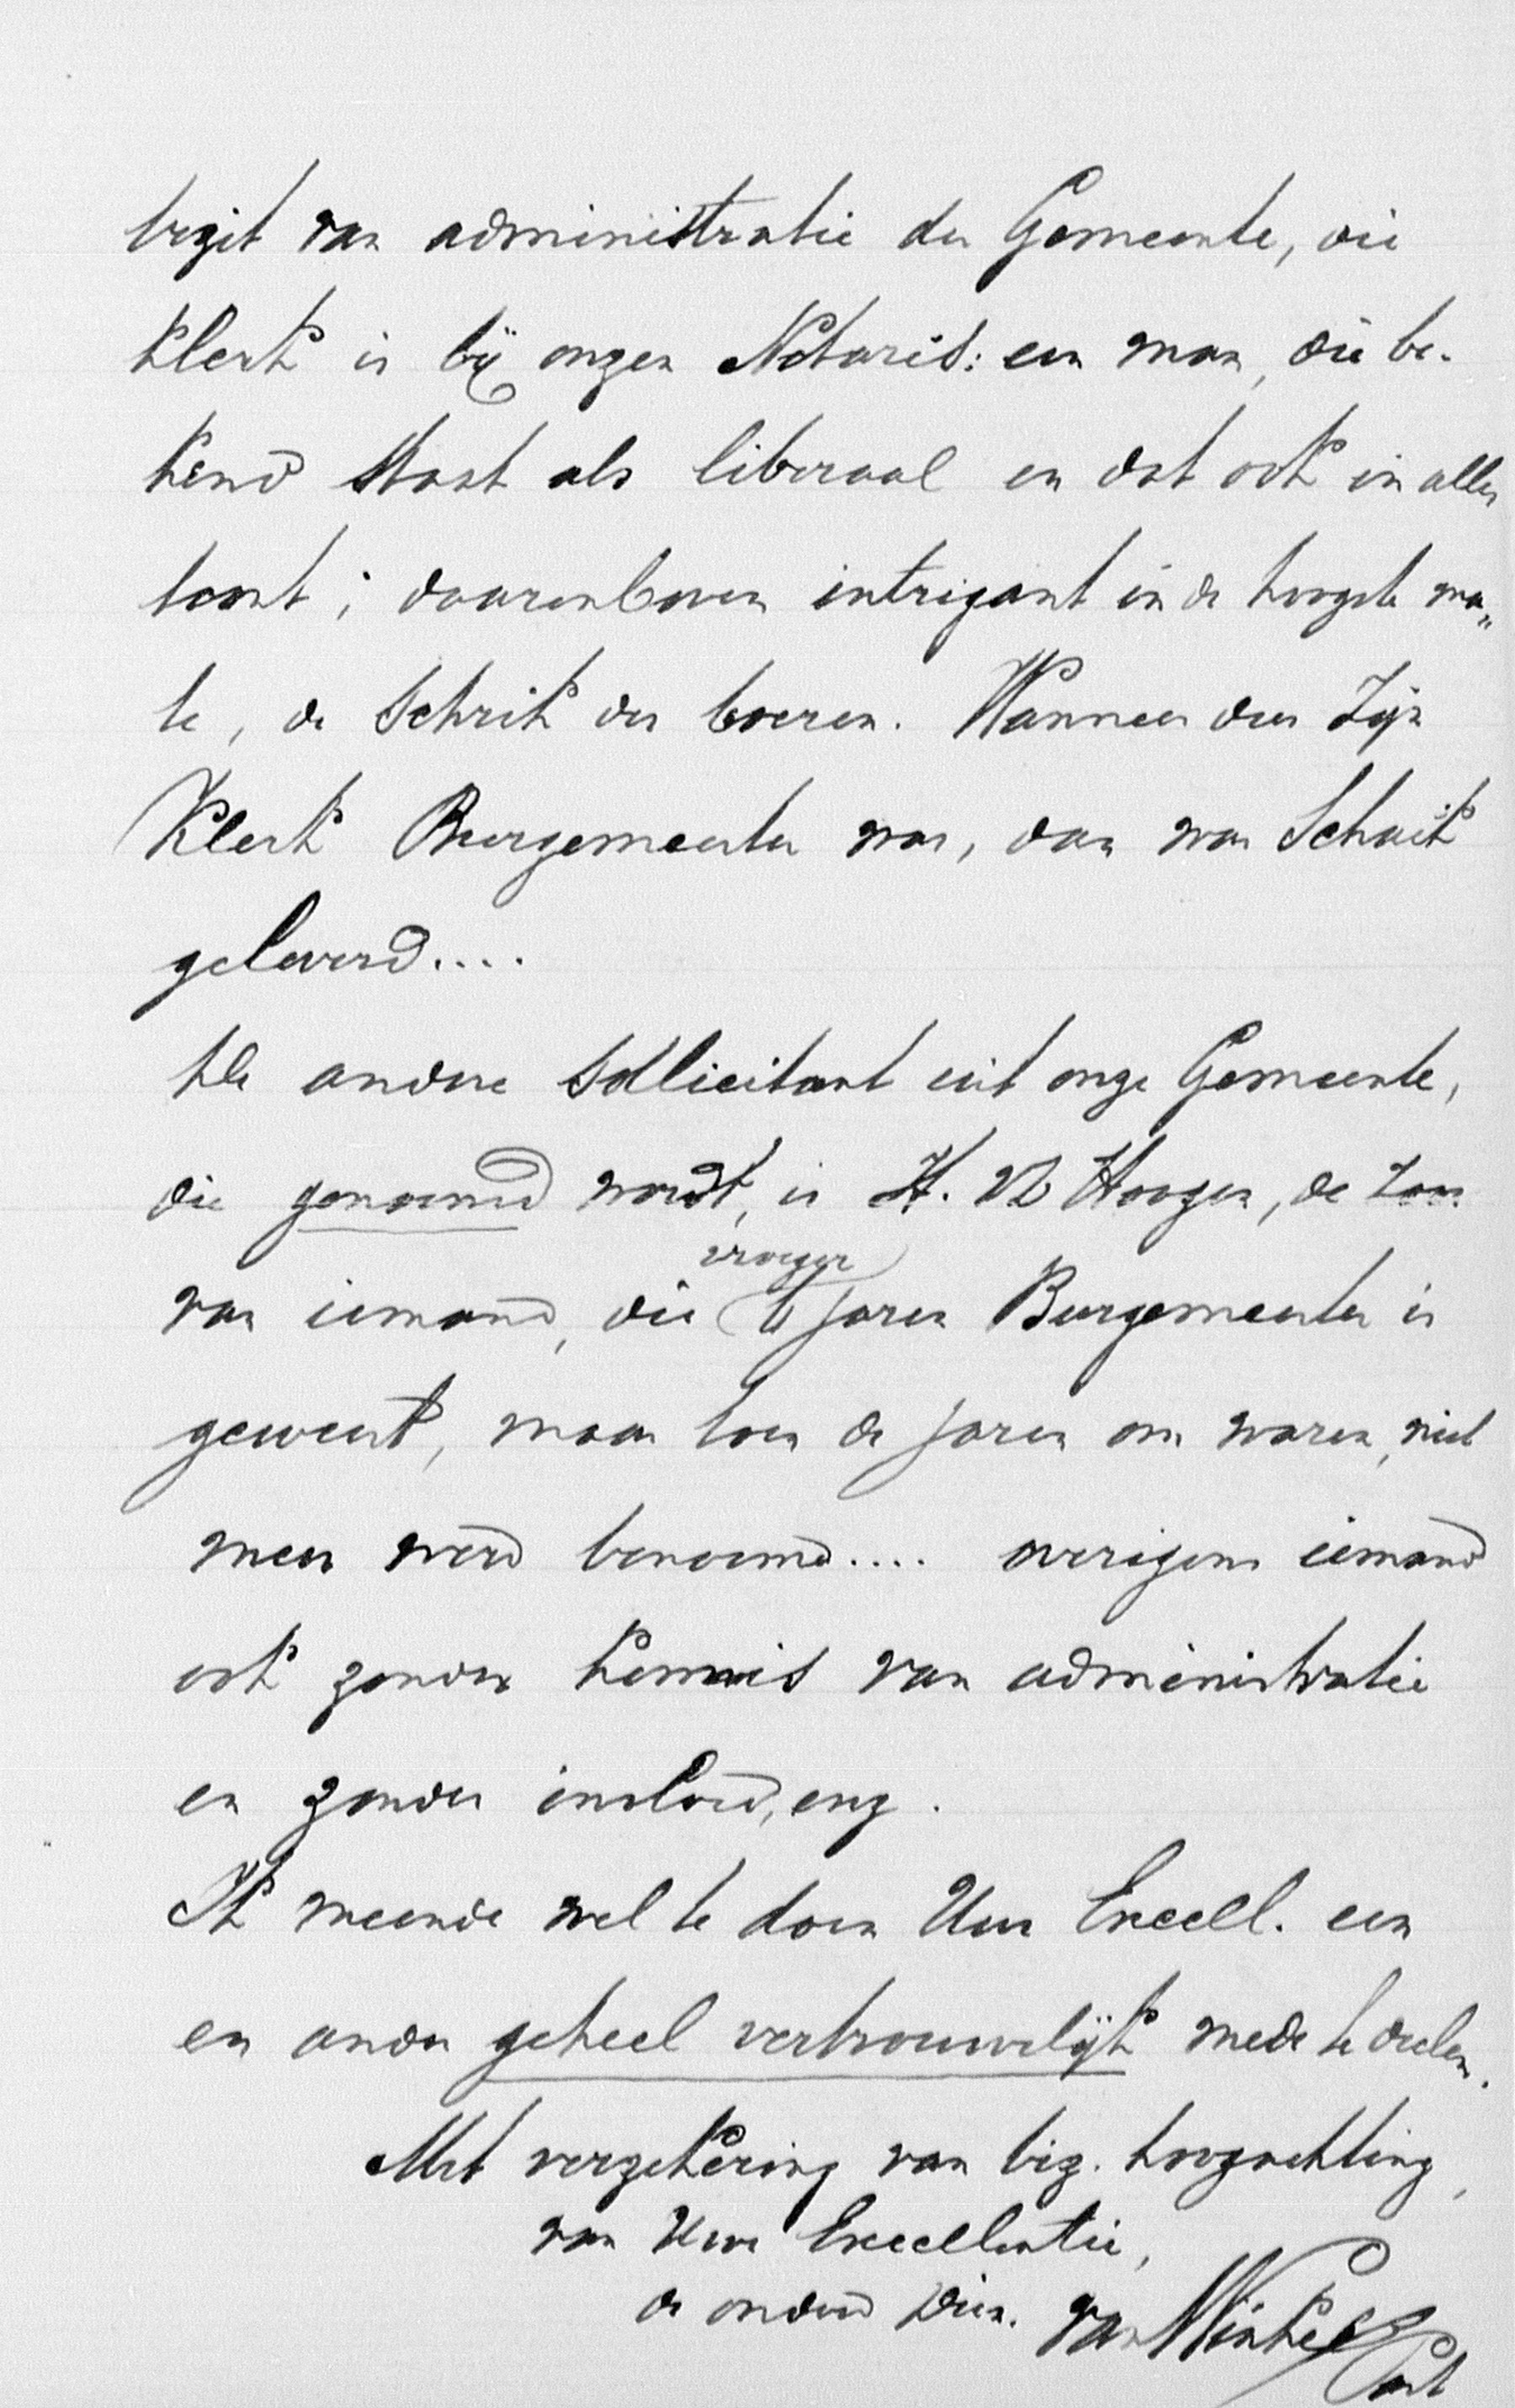 bezit van administratie der Gemeente, die
klerk is bij onzen Notaris: een man, die be-
kend staat als liberaal en dat ook in alles
toont; daarenboven intrigant in de hoogste ma„
te, de schrik der boeren. Wanneer deze zijn
Klerk Burgemeester was, dan was Schaik
geleverd....
De andere sollicitant uit onze Gemeente,
die genoemd wordt, is H. Hoogen, de zoon
vroeger
van iemand, die 6 jaren Burgemeester is
geweest, maar toen de jaren om waren, niet
meer werd benoemd.... overigens iemand
ook zonder kennis van administratie
en zonder invloed, enz.
Ik meende wel te doen Uwe Excell. een
en ander geheel vertrouwelijk mede te deelen.
Met verzekering van biz. hoogachting,
van Uwe Excellentie,
de onderd dien. van Winkel
Past